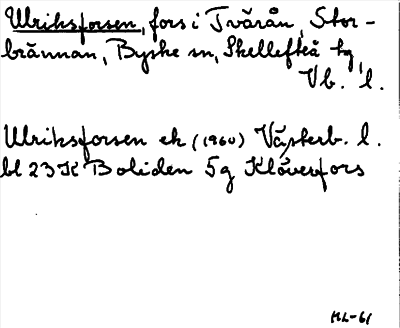 Ulriksforsen, fors i Tvärån, Stor-
brännan, Byske sn, Skellefteå tg,
Vb. l.
Ulriksforsen ek (1960) Västerb. l.
bl 23K Boliden 5g Klöverfors
HL-61